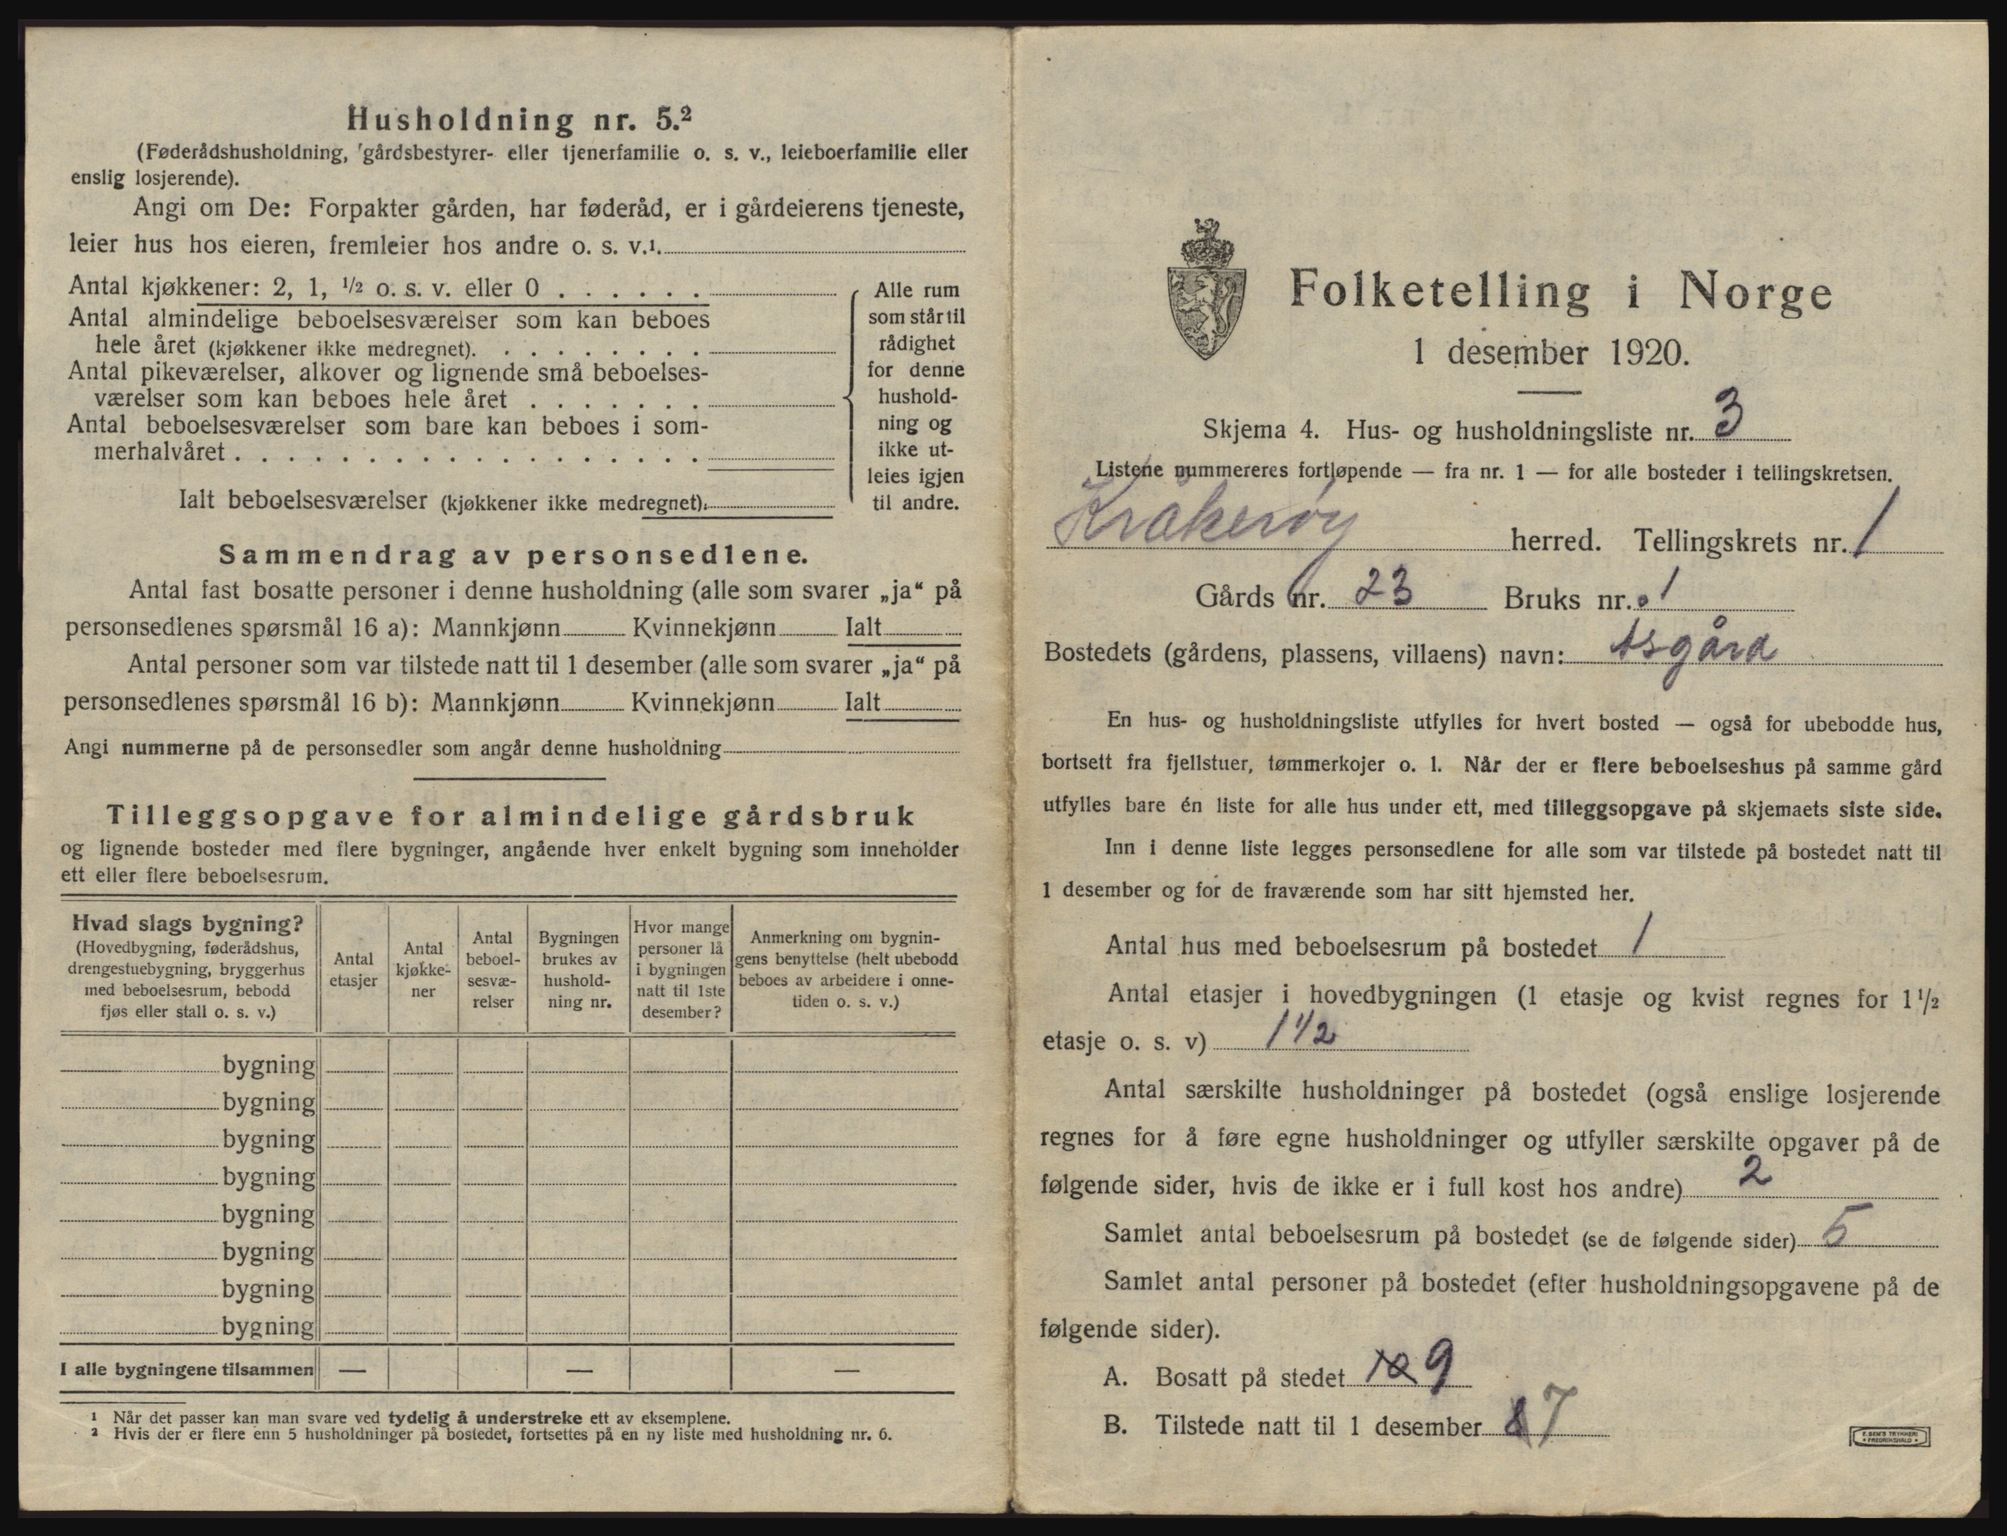 Husholdning nr. 5.²
(Føderådshusholdning, gårdsbestyrer- eller tjenerfamilie o. s. v., leieboerfamilie eller
enslig losjerende).
Angi om De: Forpakter gården, har føderåd, er i gårdeierens tjeneste,
leier hus hos eieren, fremleier hos andre o. s. v.¹.
Antal kjøkkener: 2, 1, ½ o. s. v. eller 0 . . . . . .
Antal almindelige beboelsesværelser som kan beboes
hele året (kjøkkener ikke medregnet). . . . . . . . .
Antal pikeværelser, alkover og lignende små beboelses-
værelser som kan beboes hele året . . . . . . .
Antal beboelsesværelser som bare kan beboes i som-
merhalvåret . . . . . . . . . . . . . . . . . .
Ialt beboelsesværelser (kjøkkener ikke medregnet).
Alle rum
som står til
rådighet
for denne
hushold-
ning og
ikke ut-
leies igjen
til andre.
Sammendrag av personsedlene.
Antal fast bosatte personer i denne husholdning (alle som svarer „ja“ på
personsedlenes spørsmål 16 a): Mannkjønn Kvinnekjønn Ialt
Antal personer som var tilstede natt til 1 desember (alle som svarer „ja“ på
personsedlenes spørsmål 16 b): Mannkjønn Kvinnekjønn Ialt
Angi nummerne på de personsedler som angår denne husholdning
Tilleggsopgave for almindelige gårdsbruk
og lignende bosteder med flere bygninger, angående hver enkelt bygning som inneholder
ett eller flere beboelsesrum.
Hvad slags bygning?
(Hovedbygning, føderådshus,
drengestuebygning, bryggerhus
med beboelsesrum, bebodd
fjøs eller stall o. s. v.)
Antal
etasjer
Antal
kjøkke-
ner
Antal
beboel-
sesvæ-
relser
Bygningen
brukes av
hushold-
ning nr.
Hvor mange
personer lå
i bygningen
natt til 1ste
desember?
Anmerkning om bygnin-
gens benyttelse (helt ubebodd
beboes av arbeidere i onne-
tiden o. s. v.)
bygning
bygning
bygning
bygning
bygning
bygning
bygning
bygning
I alle bygningene tilsammen — — —
¹ Når det passer kan man svare ved tydelig å understreke ett av eksemplene.
² Hvis der er flere enn 5 husholdninger på bostedet, fortsettes på en ny liste med husholdning nr. 6.
Folketelling i Norge
1 desember 1920.
Skjema 4. Hus- og husholdningsliste nr. 3
Listene nummereres fortløpende — fra nr. 1 — for alle bosteder i tellingskretsen.
Kråkerøy herred. Tellingskrets nr. 1
Gårds nr. 23 Bruks nr. 1
Bostedets (gårdens, plassens, villaens) navn: Asgård
En hus- og husholdningsliste utfylles for hvert bosted — også for ubebodde hus,
bortsett fra fjellstuer, tømmerkojer o. l. Når der er flere beboelseshus på samme gård
utfylles bare én liste for alle hus under ett, med tilleggsopgave på skjemaets siste side.
Inn i denne liste legges personsedlene for alle som var tilstede på bostedet natt til
1 desember og for de fraværende som har sitt hjemsted her.
Antal hus med beboelsesrum på bostedet 1
Antal etasjer i hovedbygningen (1 etasje og kvist regnes for 1½
etasje o. s. v) 1 1/2
Antal særskilte husholdninger på bostedet (også enslige losjerende
regnes for å føre egne husholdninger og utfyller særskilte opgaver på de
følgende sider, hvis de ikke er i full kost hos andre) 2
Samlet antal beboelsesrum på bostedet (se de følgende sider) 5
Samlet antal personer på bostedet (efter husholdningsopgavene på de
følgende sider).
A. Bosatt på stedet 10 9
B. Tilstede natt til 1 desember 8 7
E. SEM'S TRYKKERI
• FREDRIKSHALD •